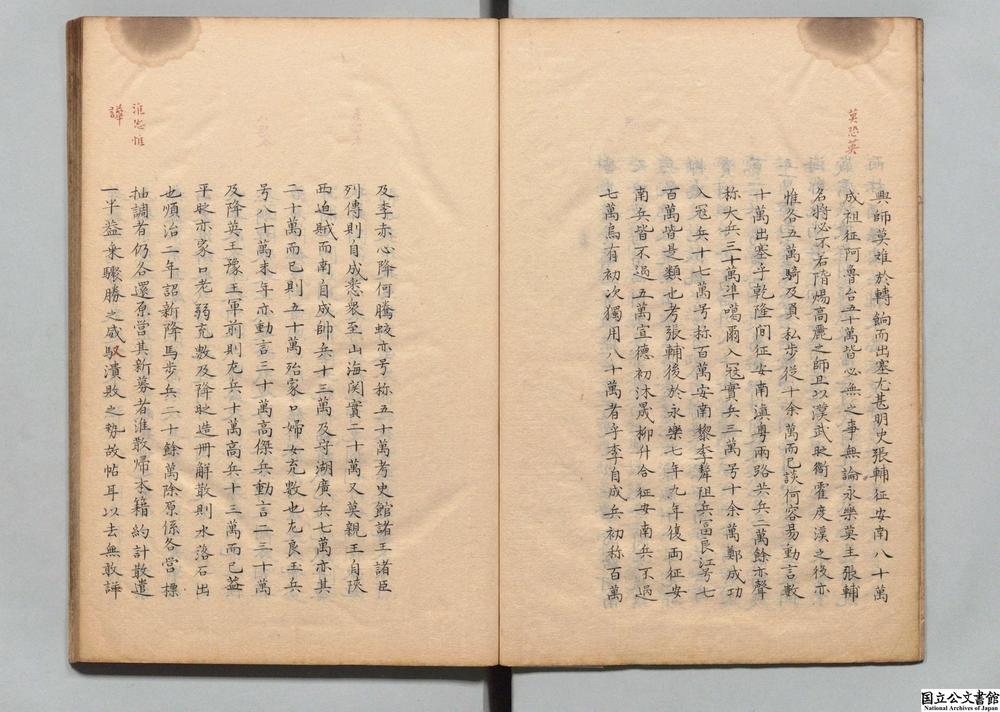 莫恐英
興師莫难於轉餉而出塞尤甚明史張輔征安南八十萬
成祖征阿魯台五十萬皆必無之事無論永樂莫主張輔
名將必不右隋煬高麗之師且以漢武時衛霍度漠之後亦
惟各五萬騎及負私步從十余萬而已談何容易動言数
十萬出塞乎乾隆间征安南滇粤兩路共兵二萬餘亦聲
称大兵三十萬準噶爾入冦實兵三萬号十余萬鄭成功
入冦兵十七萬号称百萬安南黎季犛阻兵富良江号七
百萬皆是類也考張輔後於永樂七年九年復両征安
南兵皆不過五萬宣德初沐晟柳升合征安南兵不過
七萬烏有初次獨用八十萬者乎李自成兵初称百萬
淮恐惟
譁
及李赤心降何騰蛟亦号称五十萬考史館諸王諸臣
列傳則自成悉衆至山海関實二十萬又英親王自陝
西追賊而南自成帥兵十三萬及守湖廣兵七萬亦其
二十萬而已則五十萬殆家口婦女充數也左良玉兵
号八十萬末年亦動言三十萬高傑兵動言二三十萬
及降英王豫王軍前則左兵十萬高兵十三萬而已益
平時亦家口老弱充数及降時造冊解散則水落石出
也順治二年詔新降馬步兵二十餘萬除原係各營標
抽調者仍各還原營其新募者淮散帰本籍約計散遣
一半益乗驟勝之威馭潰敗之勢故帖耳以去無敢譁
国立公文書館
National Archives of Japan